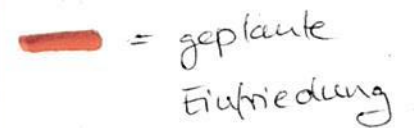 = geplante
Einfriedung